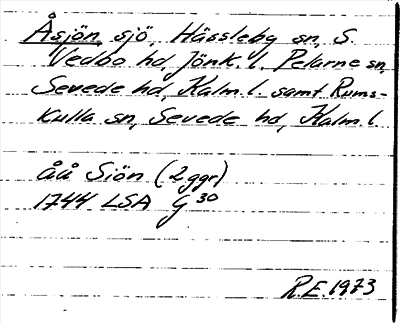 Åsjön, sjö, Hässleby sn, S.
Vedbo hd, Jönk. l. Pelarne sn,
Sevede hd, Kalm. l. samt Rums-
kulla sn, Sevede hd, Kalm. l.
åå Siön (2 ggr)
1744 LSA G 30
R.E. 1973